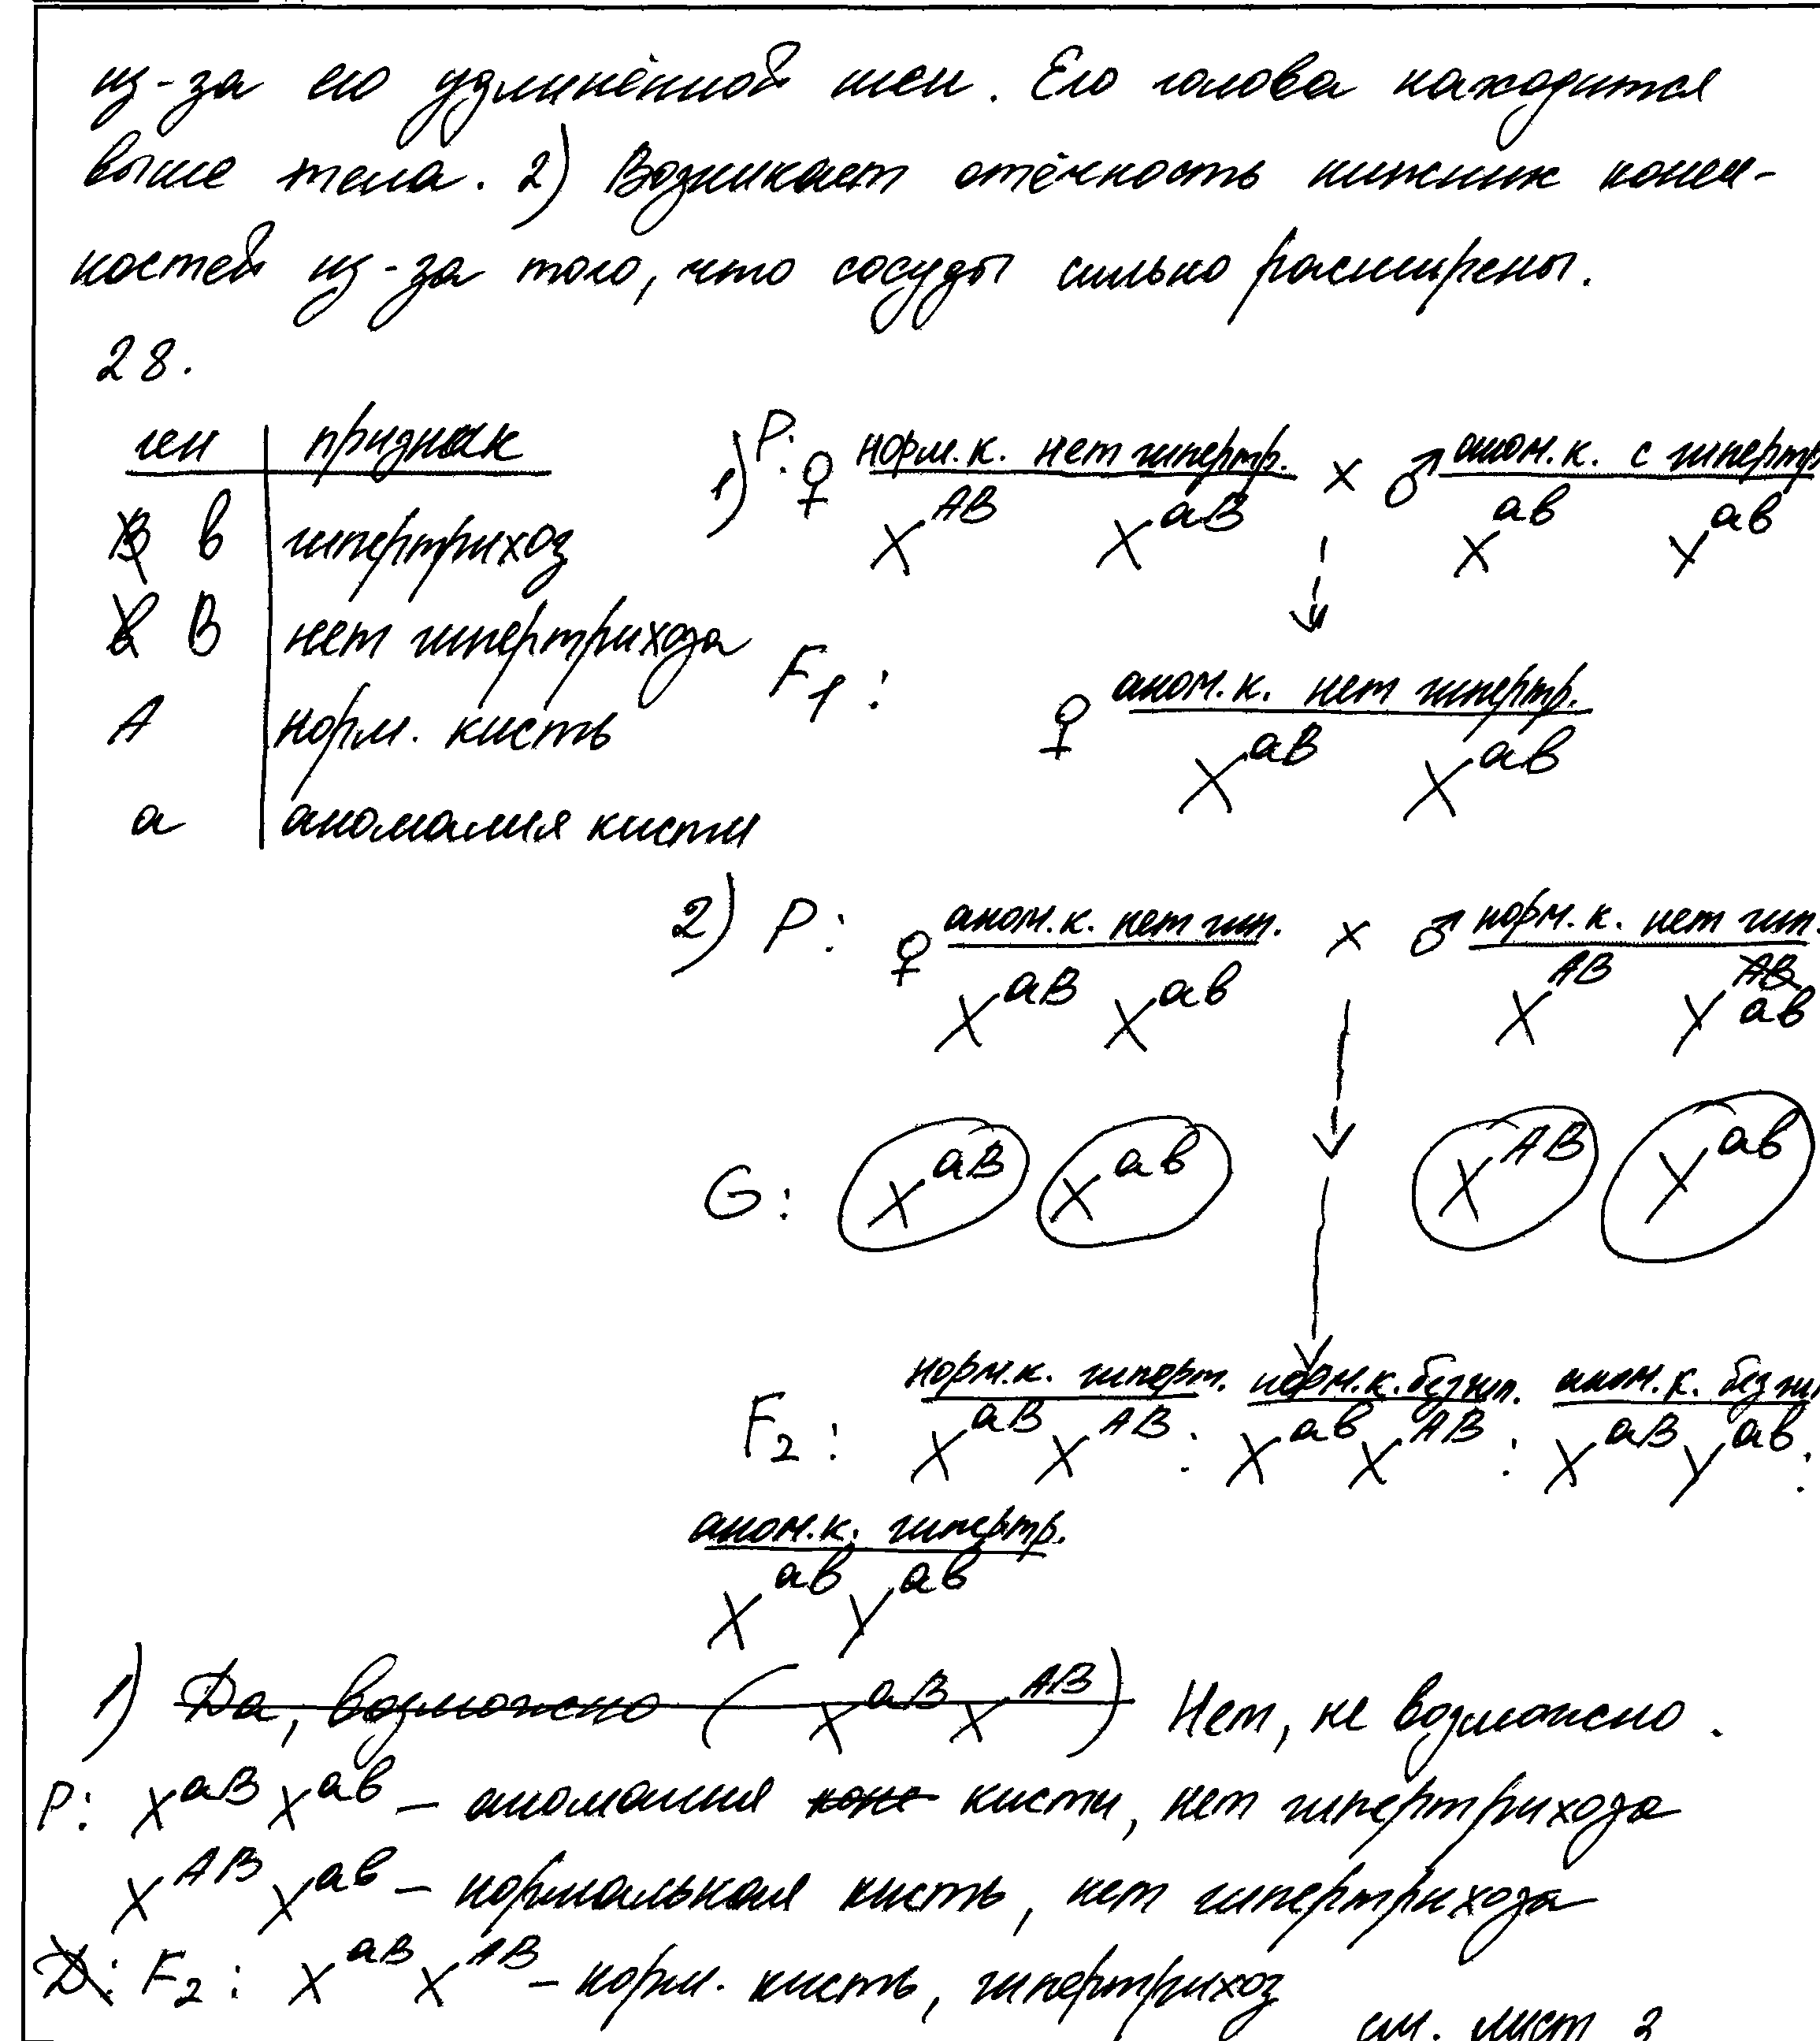 из-за его удлинённой шеи. Его голова находится
выше тела. 2) Возникает отёчность нижних конеч-
ностей из-за того, что сосуды сильно расширены.
28.
ген | признак
B в | гипертрихоз
в B | нет гипертрихоза
A | норм. кисть
a | аномалия кисти
1) P: ♀ норм. к. нет гипертр. × ♂ аном. к. с гипертр
X^AB X^aB X^ав Y^ав
F1: ♀ аном. к. нет гипертр.
X^aB X^ав
2) P: ♀ аном. к. нет гип. × ♂ норм. к. нет гип.
X^aB X^ав X^AB Y^AB ав
G: X^aB X^ав X^AB Y^ав
F2: норм. к. гиперт. норм. к. без гип. аном. к. без гип
X^aB X^AB : X^ав X^AB : X^aB Y^ав :
аном. к. гипертр.
X^ав Y^ав
1) Да, возможно (X^aB X^AB) Нет, не возможно.
P: X^aB X^ав – аномалия коне кисти, нет гипертрихоза
X^AB Y^ав – нормальная кисть, нет гипертрихоза
D: F2: X^aB X^AB – норм. кисть, гипертрихоз
см. лист 2